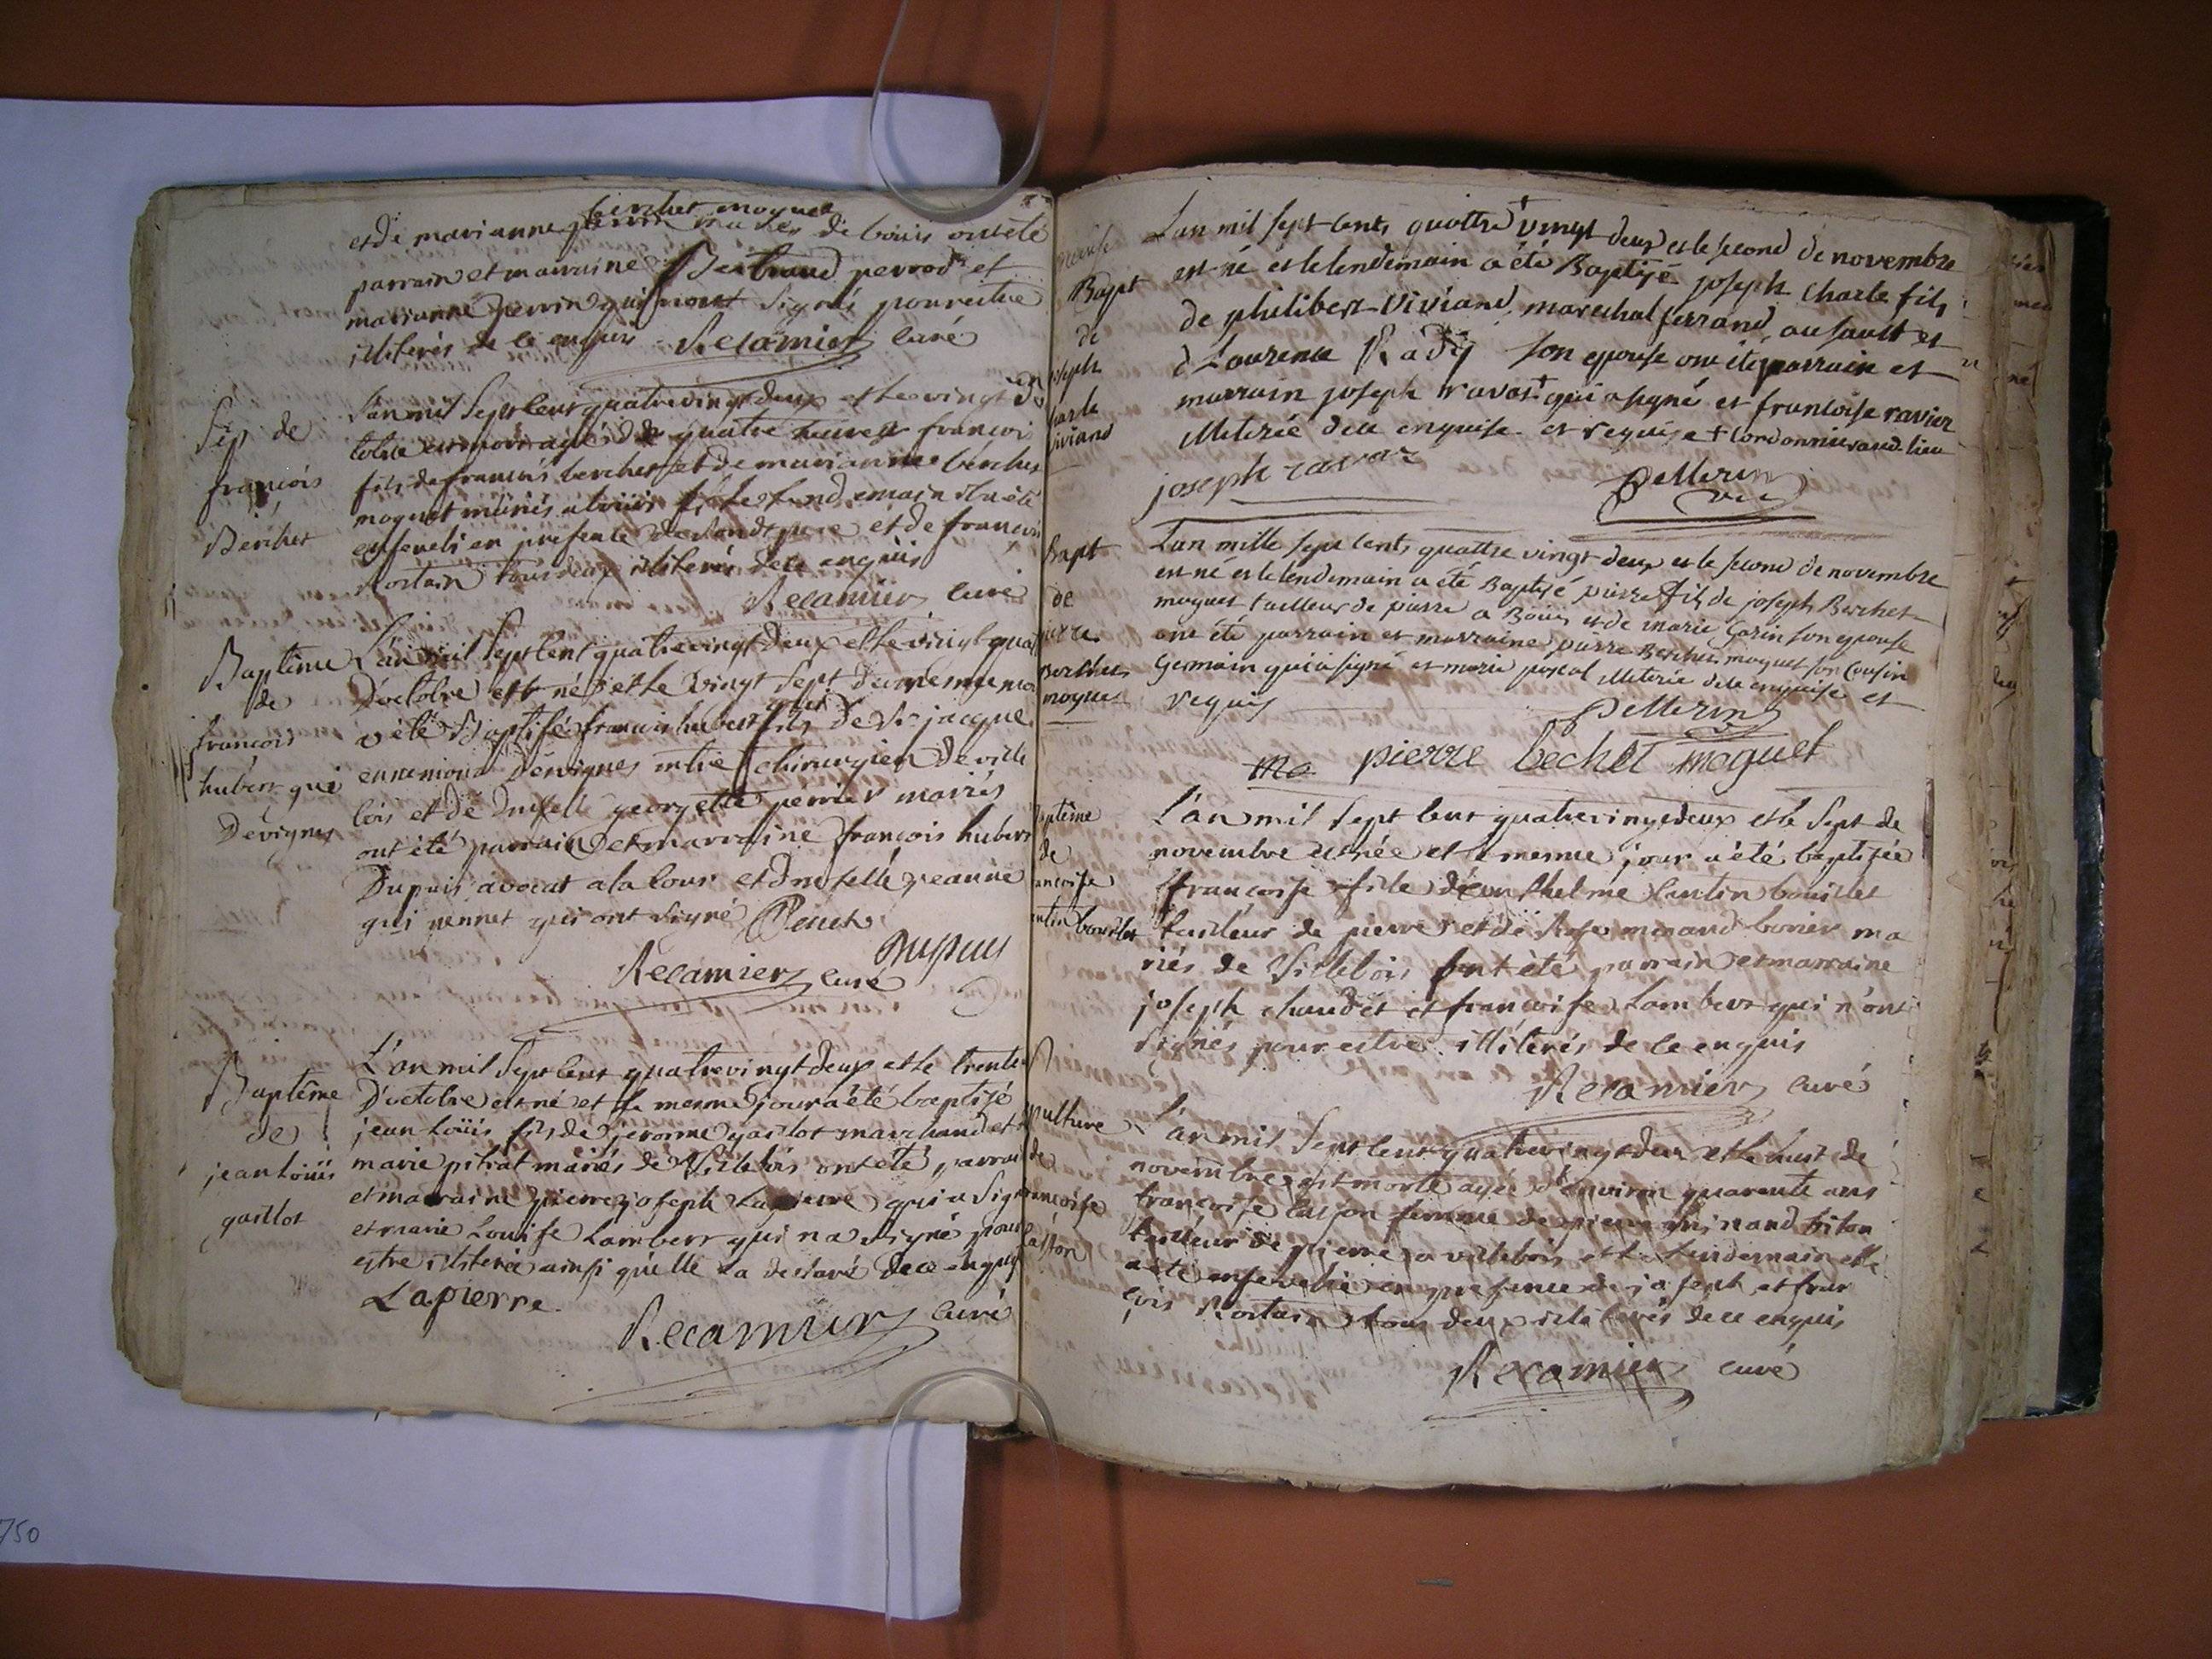 berchet moguet
et de marianne mariés de bouis ont été
parrain et marraine Bertrand perrod et
marianne perrin qui n'ont signés pour estre
illiterés de ce enquis Recamier curé
Sep. de
françois
Berchet
L'an mil sept cent quatrevingt deux et le vingt d'oc
tobre est mort agé de quatre heures françois
fils de françois berchet et de marianne berchet
moguet mariés a bouis et le lendemain il a été
enseveli en presence de son dt pere et de francois
Rostain tous deux illiterés de ce enquis
Recamier curé
Baptême
de
francois
hubert gui
Devignes
L'an mil sept cent quatrevingt deux et le vingt quatre
D'octobre est né et le vingt sept du mesme mois
a été Baptisé francois hubert gui fils de Sr jacque
ennemond Devignes mtre chirurgien de ville
bois et de Dmselle georgette perrier mariés
ont été parrain et marraine françois hubert
Dupuis avocat a la cour et Dmselle jeanne
qui ont signé
Dupuis
Recamier curé
Baptême
de
jean loüis
gaillot
L'an mil sept cent quatrevingt deux et le trente
D'octobre est né et le mesme jour a été baptisé
jean Loüis fils de jerome gaillot marchand et de
marie pitrat mariés de Villebois ont été parrain
et marraine pierre joseph Lapierre qui a signé
et marie Louise Lambert qui n'a signé pour
estre illiterée ainsi qu'elle l'a declaré de ce enquis
Lapierre
Recamier curé
Bapt
de
joseph
charle
viviand
L'an mil sept cents quattre vingt deux et le second de novembre
est né et le lendemain a été Baptisé joseph Charle fils
de philibert Viviand, marechal ferrand, au sault et
d Laurence Rady son epouse ont été parrain et
marrain joseph ravat + qui a signé et francoise ravier
illiterée de ce enquise et requise + Cordonnier aud. lieu
joseph ravat
Pellerin
vic
Bapt
de
pierre
Berchet
moguet
L'an mille sept cents quattre vingt deux et le second de novembre
est né et le lendemain a été Baptisé pierre fils de joseph Berchet
moguet tailleur de pierre a Bouis et de marie Garin son epouse
ont été parrain et marraine pierre Berchet moguet son Cousin
Germain qui a signé et marie pascal illiterée de ce enquise et
requis
Pellerin
mo pierre bechet moguet
Baptême
de
francoise
cantin bouillet
L'an mil sept cent quatrevingt deux et le sept de
novembre est née et le mesme jour a été baptisée
francoise fille de anthelme Cantin bouillet
tailleur de pierre et de Rose minand borier ma
riés de Villebois ont été parrain et marraine
joseph chaudet et françoise Lambert qui n'ont
signés pour estre illiterés de ce enquis
Recamier curé
Sepulture
de
francoise
caston
L'an mil sept cent quatrevingt deux et le huit de
novembre est morte agée d'environ quarente ans
francoise caston femme de pierre minand biton
tailleur de pierre a villebois et le lendemain elle
a été ensevelie en presence de joseph et fran
çois Rostain tous deux illiterés de ce enquis
Recamier curé
750